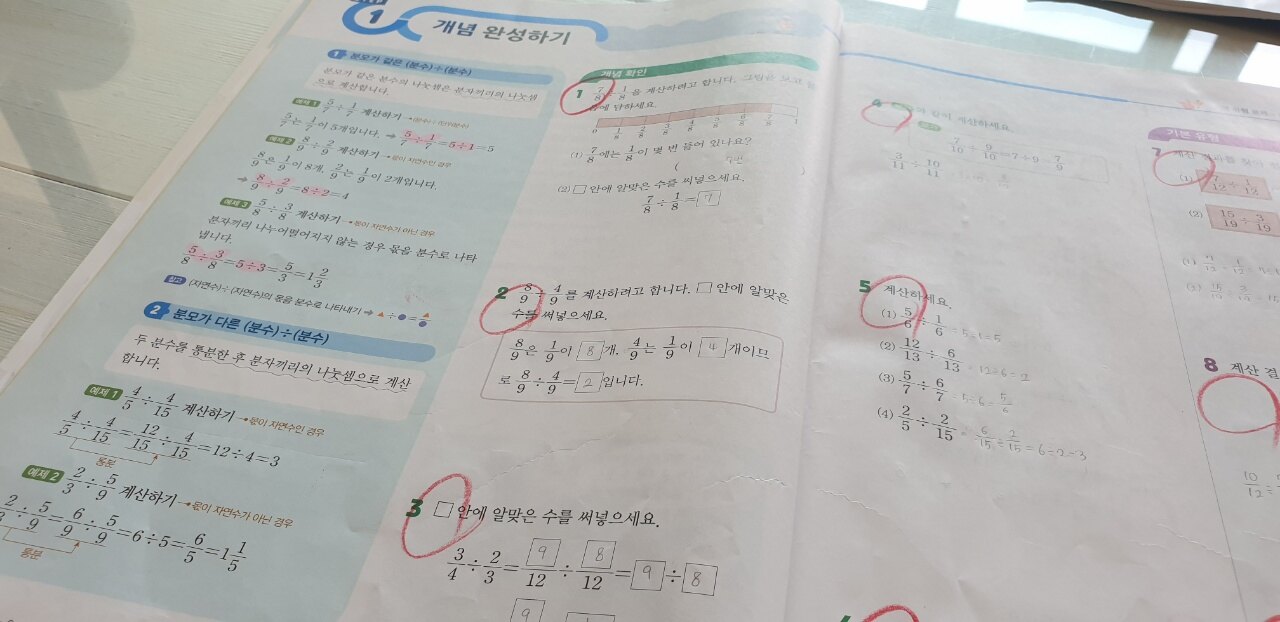 1 개념 완성하기
1 분모가 같은 (분수)÷(분수)
분모가 같은 분수의 나눗셈은 분자끼리의 나눗셈
으로 계산합니다.
예제 1 5/7÷1/7 계산하기 →(분수)÷(단위분수)
5/7는 1/7이 5개입니다. ➔ 5/7÷1/7=5÷1=5
예제 2 8/9÷2/9 계산하기 →몫이 자연수인 경우
8/9은 1/9이 8개, 2/9는 1/9이 2개입니다.
➔ 8/9÷2/9=8÷2=4
예제 3 5/8÷3/8 계산하기 →몫이 자연수가 아닌 경우
분자끼리 나누어떨어지지 않는 경우 몫을 분수로 나타
냅니다.
5/8÷3/8=5÷3=5/3=1 2/3
참고 (자연수)÷(자연수)의 몫을 분수로 나타내기 ➔ ▲÷●=▲/●
2 분모가 다른 (분수)÷(분수)
두 분수를 통분한 후 분자끼리의 나눗셈으로 계산
합니다.
예제 1 4/5÷4/15 계산하기 →몫이 자연수인 경우
4/5÷4/15=12/15÷4/15=12÷4=3
통분
예제 2 2/3÷5/9 계산하기 →몫이 자연수가 아닌 경우
2/3÷5/9=6/9÷5/9=6÷5=6/5=1 1/5
통분
개념 확인
1 7/8÷1/8을 계산하려고 합니다. 그림을 보고
에 답하세요.
0 1/8 2/8 3/8 4/8 5/8 6/8 7/8 1
(1) 7/8에는 1/8이 몇 번 들어 있나요?
( 7번 )
(2) □ 안에 알맞은 수를 써넣으세요.
7/8÷1/8=7
2 8/9÷4/9를 계산하려고 합니다. □ 안에 알맞은
수를 써넣으세요.
8/9은 1/9이 8개, 4/9는 1/9이 4개이므
로 8/9÷4/9=2입니다.
3 □ 안에 알맞은 수를 써넣으세요.
3/4÷2/3=9/12÷8/12=9÷8
9
4 같이 계산하세요.
보기
7/10÷9/10=7÷9=7/9
3/11÷10/11
5 계산하세요.
(1) 5/6÷1/6=5÷1=5
(2) 12/13÷6/13=12÷6=2
(3) 5/7÷6/7=5÷6=5/6
(4) 2/5÷2/15=6/15÷2/15=6÷2=3
기본 유형
7 계산
(1) 7/12÷1/12
(2) 15/19÷3/19
8 계산 결
10/12÷